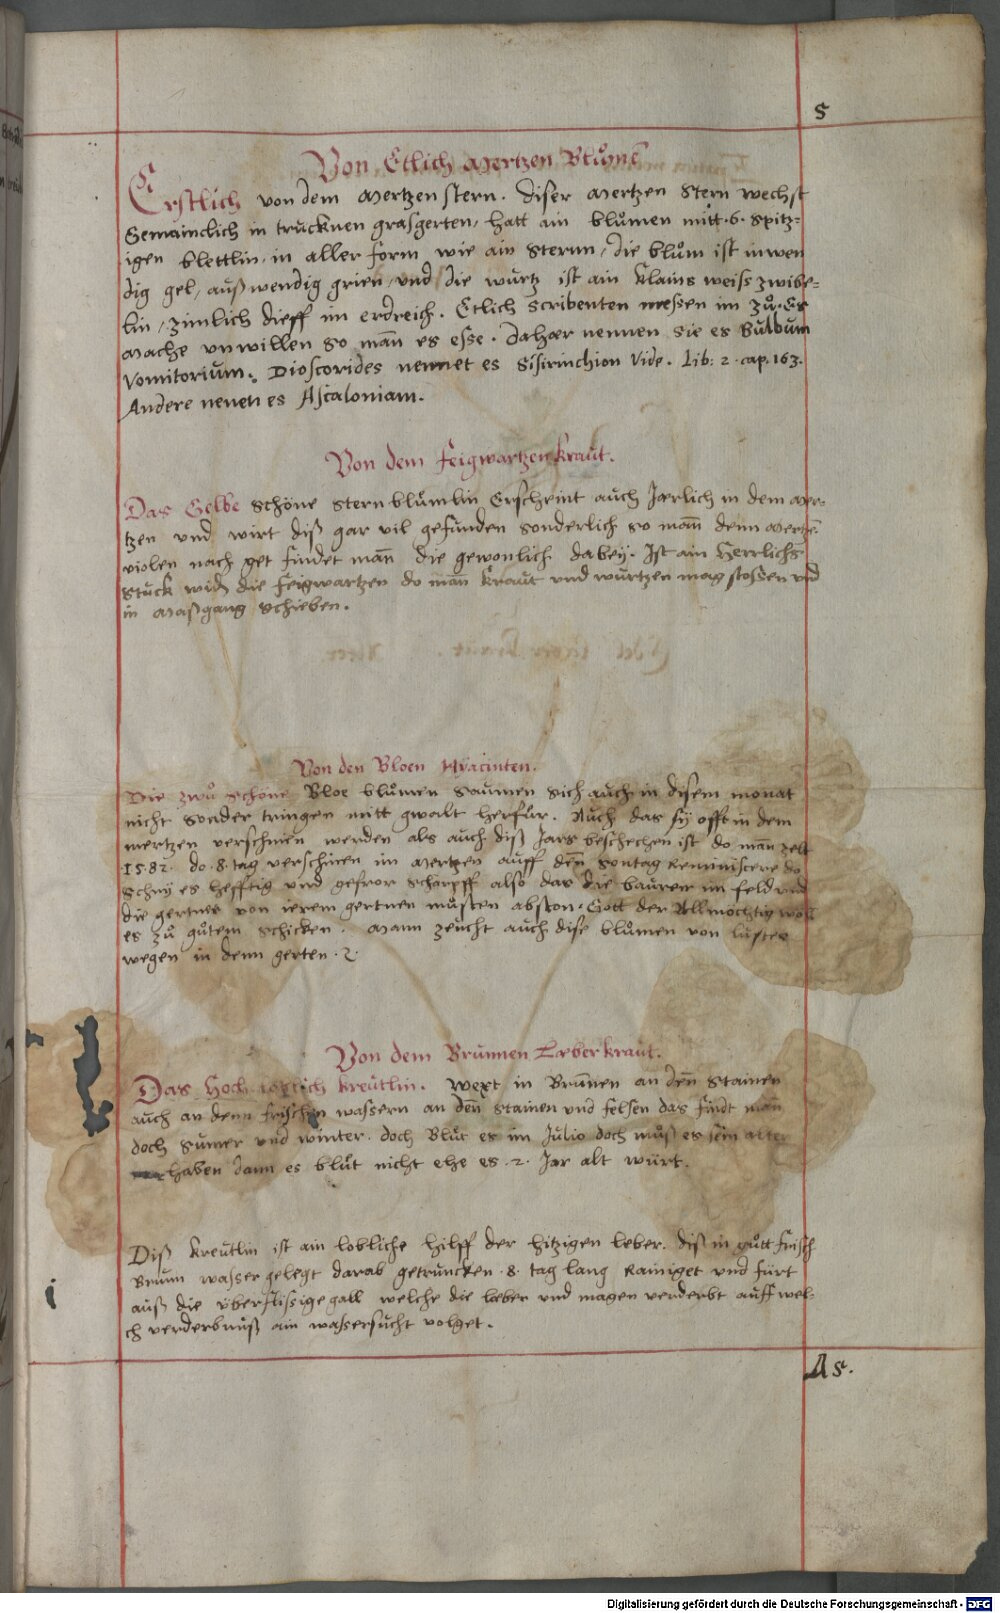 5
Von Etlich Mertzen Blůmē
Erstlich von dem Mertzen stern. diser Mertzen Stern wechst
Gemainclich in trucknen grasgerten, hatt ain blůmen mitt .6. Spitz=
igen blettlin, in aller form wie ain Sternn, die blům ist inwen
dig gel, außwendig grien, und die wurtz ist ain klains weiss zwibe=
lin, zimlich dieff im erdreich. Etlich Scribenten messen im zů. Es
Mache unwillen so man̄ es esse. daher nennen sie es Bulbum
Vomitorium. Dioscorides nennet es Sisirinchion Vide. Lib: 2. cap. 163.
Andere nenen es Ascaloniam.
Von dem feigwartzen kraut.
Das Gelbe Schöne Stern blůmlin Erscheint auch Jærlich in dem Mer=
tzen und wirt diß gar vil gefunden sonderlich so mann denn Mertzē
violen nach get findet man̄ die gewonlich dabey. Ist ain Herrlichs
Stuck wid die feigwartzen do man̄ kraut und wurtzen mag stossen und
in Maßgang schieben.
Von den Bloen Hyacinten.
Die zwů schöne Bloe blůmen saumen sich auch in disem monat
nicht sonder tringen mitt gwalt herfůr. Auch das sy offt in dem
mertzen verschinen werden als auch diß Jars beschechen ist do man zelt
1582. do .8. tag verschinen im Mertzen auff den̄ Sontag Reminiscere do
Schny es hefftig und gefror scharpff also das die bauren im feld und
die gertner von ierem gertnen můsten abston. Gott der Allmechtig woll
es zů gůtem schicken. Mann zeucht auch dise blůmen von lustes
wegen in denn gerten.
Von dem Brunnen Læberkraut.
Das Hoch kreutlin. Wext in Brun̄en an den̄ Stainen
auch an denn frischen wassern an den̄ Stainen und felsen das findt man̄
doch Sumer und winter. doch Blůt es im Julio doch můß es sein alter
haben dann es blůt nicht ehe es .2. Jar alt würt.
Diß kreutlin ist ain lobliche hilff der hitzigen leber. diß in gůtt frisch
Brunn wasser gelegt darab getruncken .8. tag lang Rainiget und fürt
auß die überflissige gall welche die leber und magen verderbt auff wel=
ch verderbnuß ain wassersucht volget.
A5.
Digitalisierung gefördert durch die Deutsche Forschungsgemeinschaft - DFG